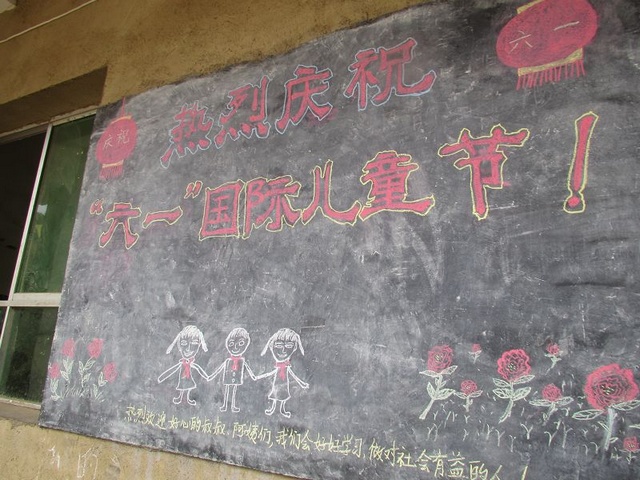 热烈庆祝
六一
庆祝
“六一”国际儿童节！
热烈欢迎好心的叔叔，阿姨们，我们会好好学习，做对社会有益的人！